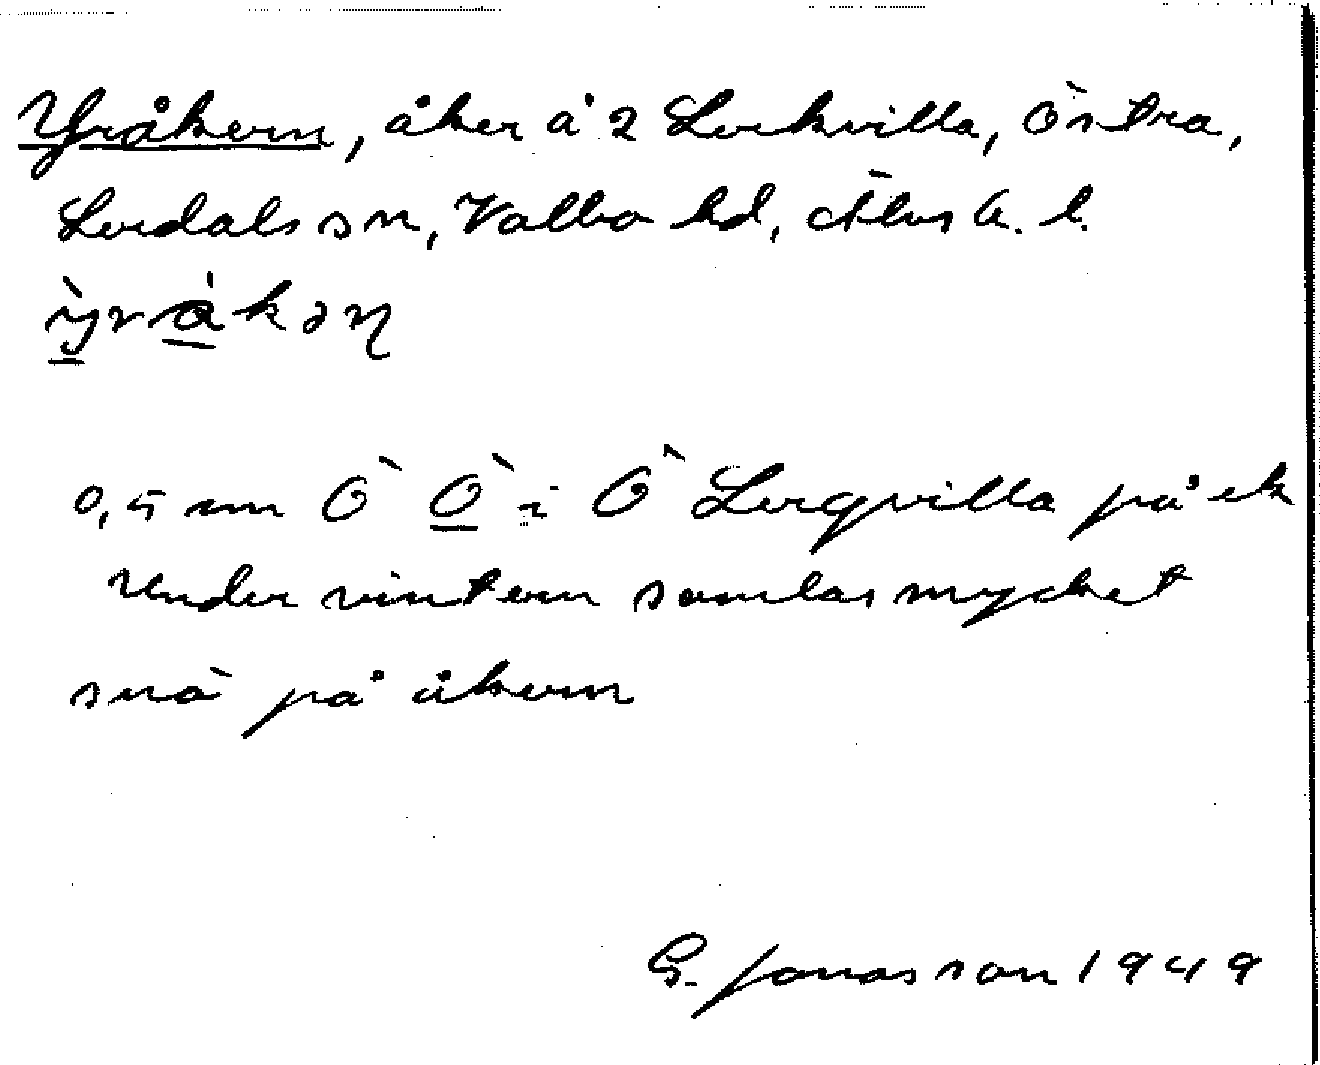 Yråkern, åker å 2 Lerkvilla, Östra,
Lerdals sn, Valbo hd, Älvsb. l.
ỳråkəɳ
0,5 km Ö Ö i Ö Lergvilla på ek
Under vintern samlas mycket
snö på åkern
G. Jonasson 1949